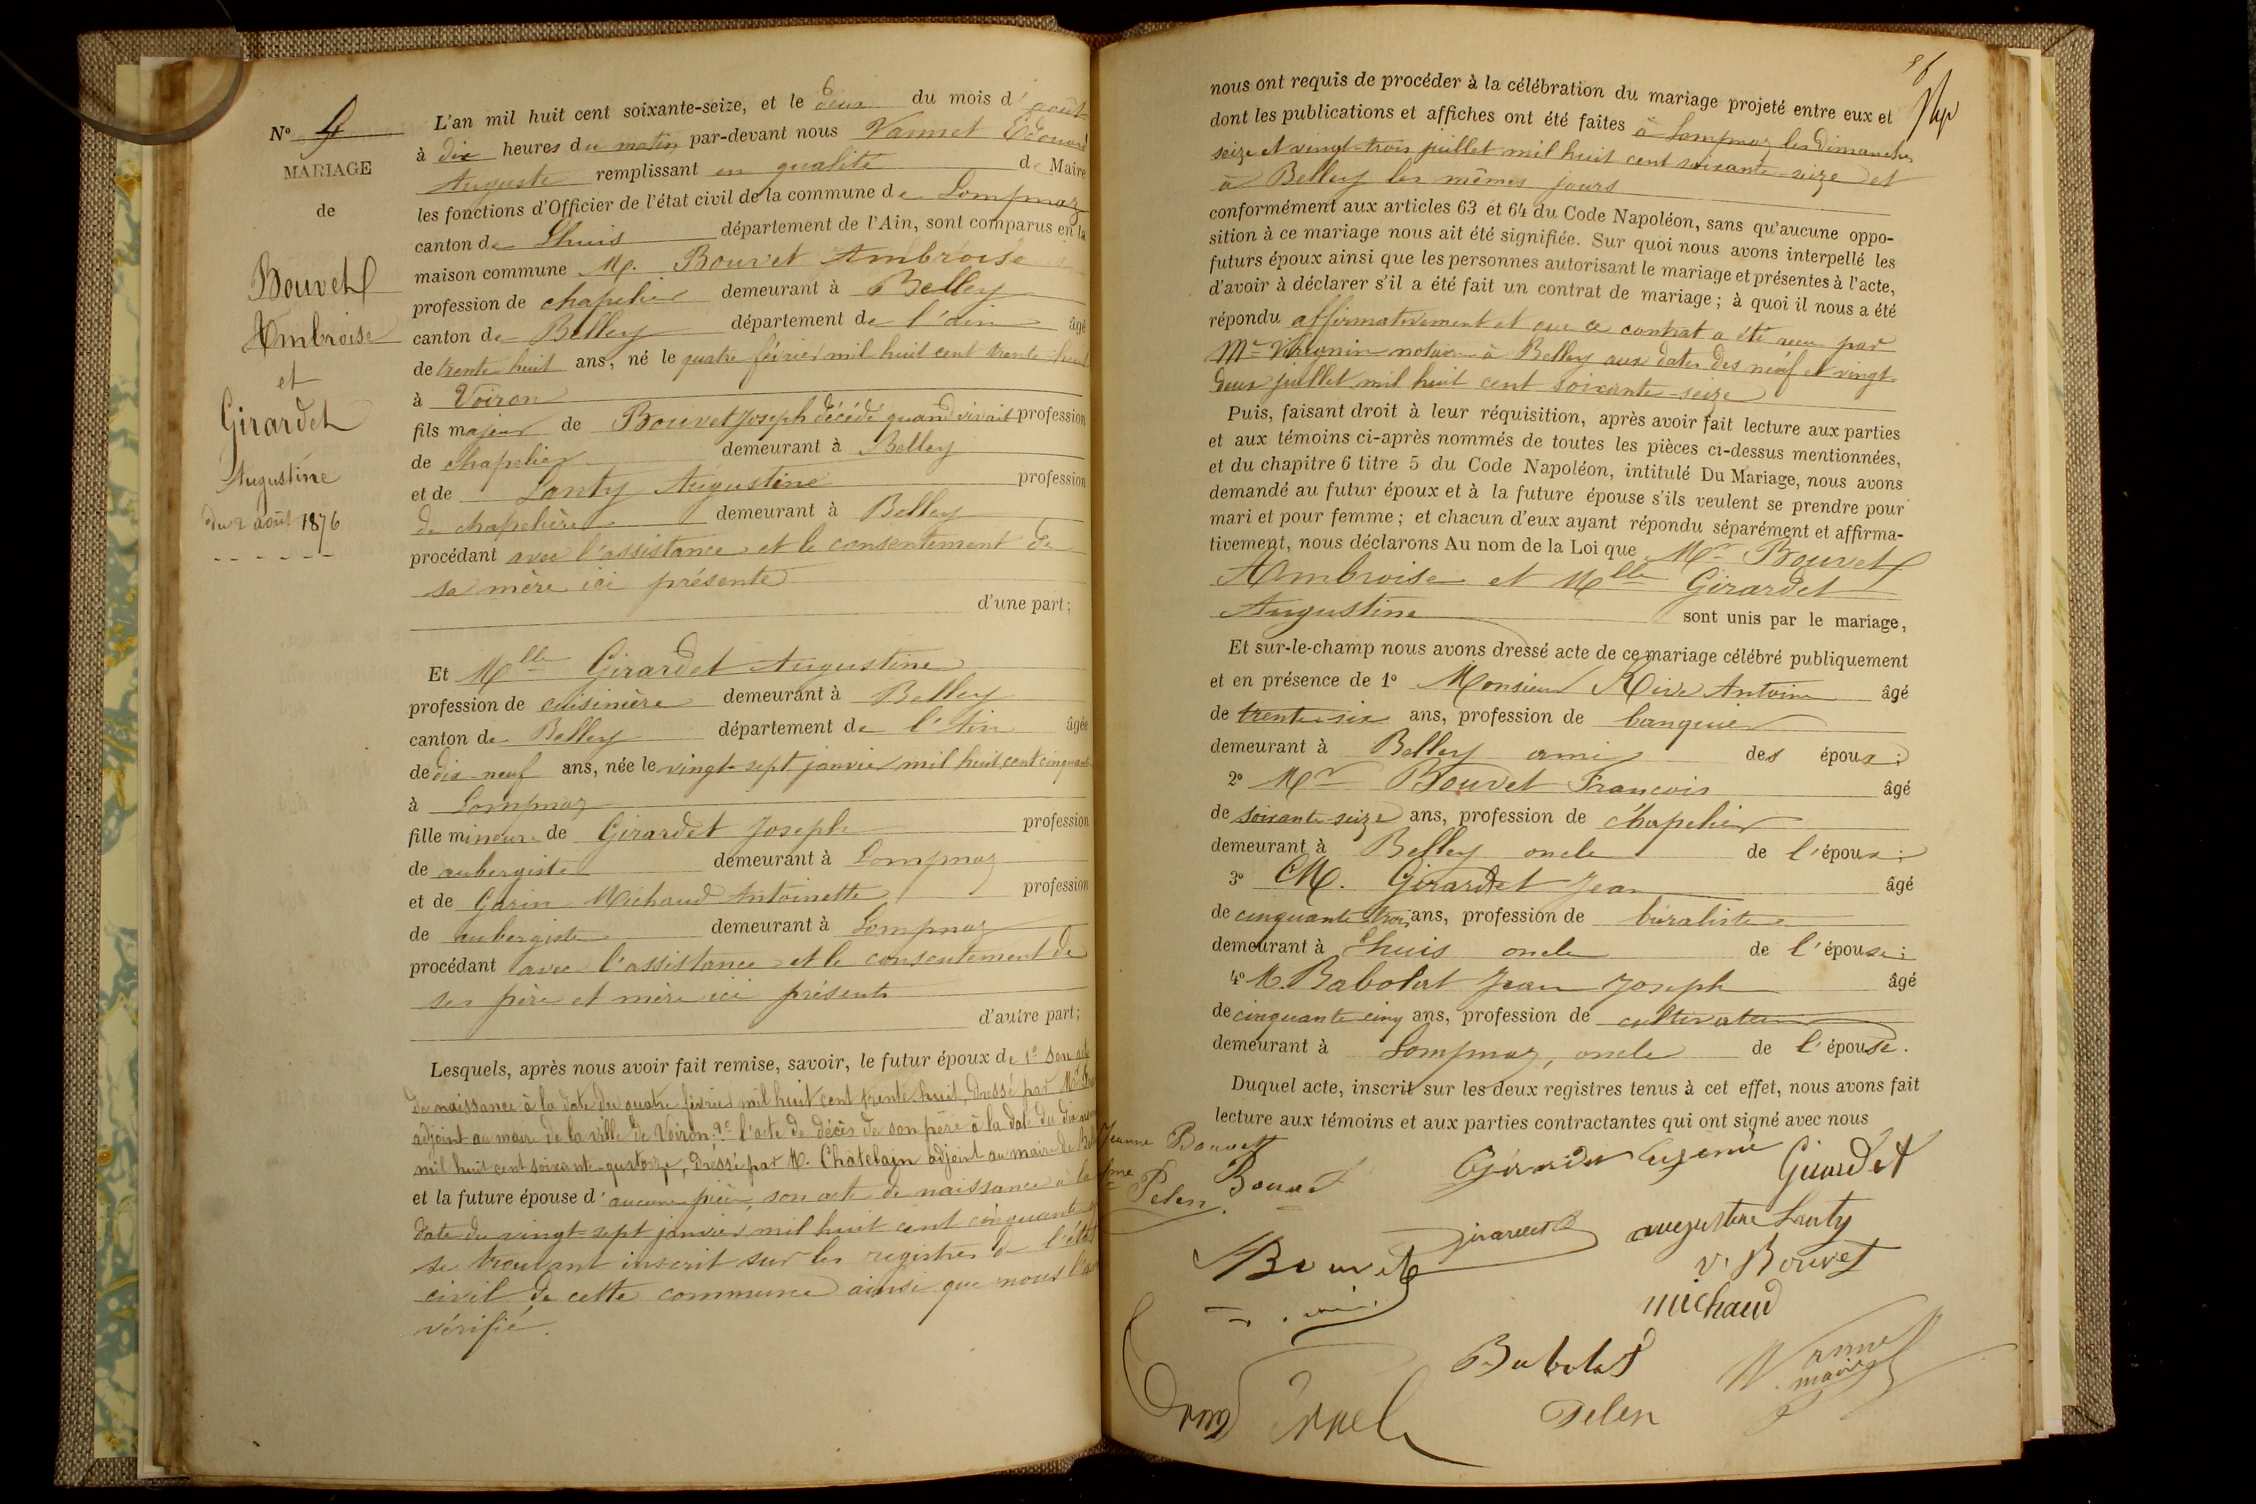 N° 4
MARIAGE
de
Bouvet
Ambroise
et
Girardet
Augustine
du 2 août 1876
L'an mil huit cent soixante-seize, et le deux du mois d'août
à dix heures du matin par-devant nous Vannet Édouard
Auguste remplissant en qualité de Maire
les fonctions d'Officier de l'état civil de la commune de Lompnaz
canton de Lhuis département de l'Ain, sont comparus en la
maison commune M. Bouvet Ambroise
profession de chapelier demeurant à Belley
canton de Belley département de l'ain âgé
de trente huit ans, né le quatre février mil huit cent trente huit
à Voiron
fils majeur de Bouvet Joseph décédé quand vivait profession
de chapelier demeurant à Belley
et de Lanty Augustine profession
de chapelière demeurant à Belley
procédant avec l'assistance et le consentement de
sa mère ici présente
d'une part;
Et Mlle Girardet Augustine
profession de cuisinière demeurant à Belley
canton de Belley département de l'Ain âgée
de dix-neuf ans, née le vingt-sept janvier mil huit cent cinquante
à Lompnaz
fille mineure de Girardet Joseph profession
de aubergiste demeurant à Lompnaz
et de Garin Michaud Antoinette profession
de aubergiste demeurant à Lompnaz
procédant avec l'assistance et le consentement de
ses père et mère ici présents
d'autre part;
Lesquels, après nous avoir fait remise, savoir, le futur époux de 1° son acte
de naissance à la date du quatre février mil huit cent trente huit, dressé par Mr
adjoint au maire de la ville de Voiron, 2° l'acte de décès de son père à la date du
mil huit cent soixante-quatorze, dressé par M. Châtelain adjoint au maire de
et la future épouse d'aucune pièce, son acte de naissance à la
date du vingt-sept janvier mil huit cent cinquante
se trouvant inscrit sur les registres de l'état
civil de cette commune ainsi que nous l'
vérifié.
nous ont requis de procéder à la célébration du mariage projeté entre eux et
dont les publications et affiches ont été faites à Lompnaz les dimanches
seize et vingt-trois juillet mil huit cent soixante-seize et
à Belley les mêmes jours
conformément aux articles 63 et 64 du Code Napoléon, sans qu'aucune oppo-
sition à ce mariage nous ait été signifiée. Sur quoi nous avons interpellé les
futurs époux ainsi que les personnes autorisant le mariage et présentes à l'acte,
d'avoir à déclarer s'il a été fait un contrat de mariage; à quoi il nous a été
répondu affirmativement et que ce contrat a été reçu par
Me notaire à Belley aux dates des neuf et vingt-
deux juillet mil huit cent soixante-seize
Puis, faisant droit à leur réquisition, après avoir fait lecture aux parties
et aux témoins ci-après nommés de toutes les pièces ci-dessus mentionnées,
et du chapitre 6 titre 5 du Code Napoléon, intitulé Du Mariage, nous avons
demandé au futur époux et à la future épouse s'ils veulent se prendre pour
mari et pour femme; et chacun d'eux ayant répondu séparément et affirma-
tivement, nous déclarons Au nom de la Loi que Mr Bouvet
Ambroise et Mlle Girardet
Augustine sont unis par le mariage,
Et sur-le-champ nous avons dressé acte de ce mariage célébré publiquement
et en présence de 1° Monsieur Rive Antoine âgé
de trente six ans, profession de banquier
demeurant à Belley ami des époux;
2° Mr Bouvet Francois âgé
de soixante-seize ans, profession de chapelier
demeurant à Belley oncle de l'époux;
3° M. Girardet Jean âgé
de cinquante trois ans, profession de buraliste
demeurant à Lhuis oncle de l'épouse;
4° M. Babolat Jean Joseph âgé
de cinquante cinq ans, profession de cultivateur
demeurant à Lompnaz, oncle de l'épouse.
Duquel acte, inscrit sur les deux registres tenus à cet effet, nous avons fait
lecture aux témoins et aux parties contractantes qui ont signé avec nous
Jeanne Bouvet
Girardet Eugénie
Girardet
Pelen
Bouvet
Girardet
augustine Lanty
v. Bouvet
Bouvet
michaud
Babolat
Vannet
maire
Pelen